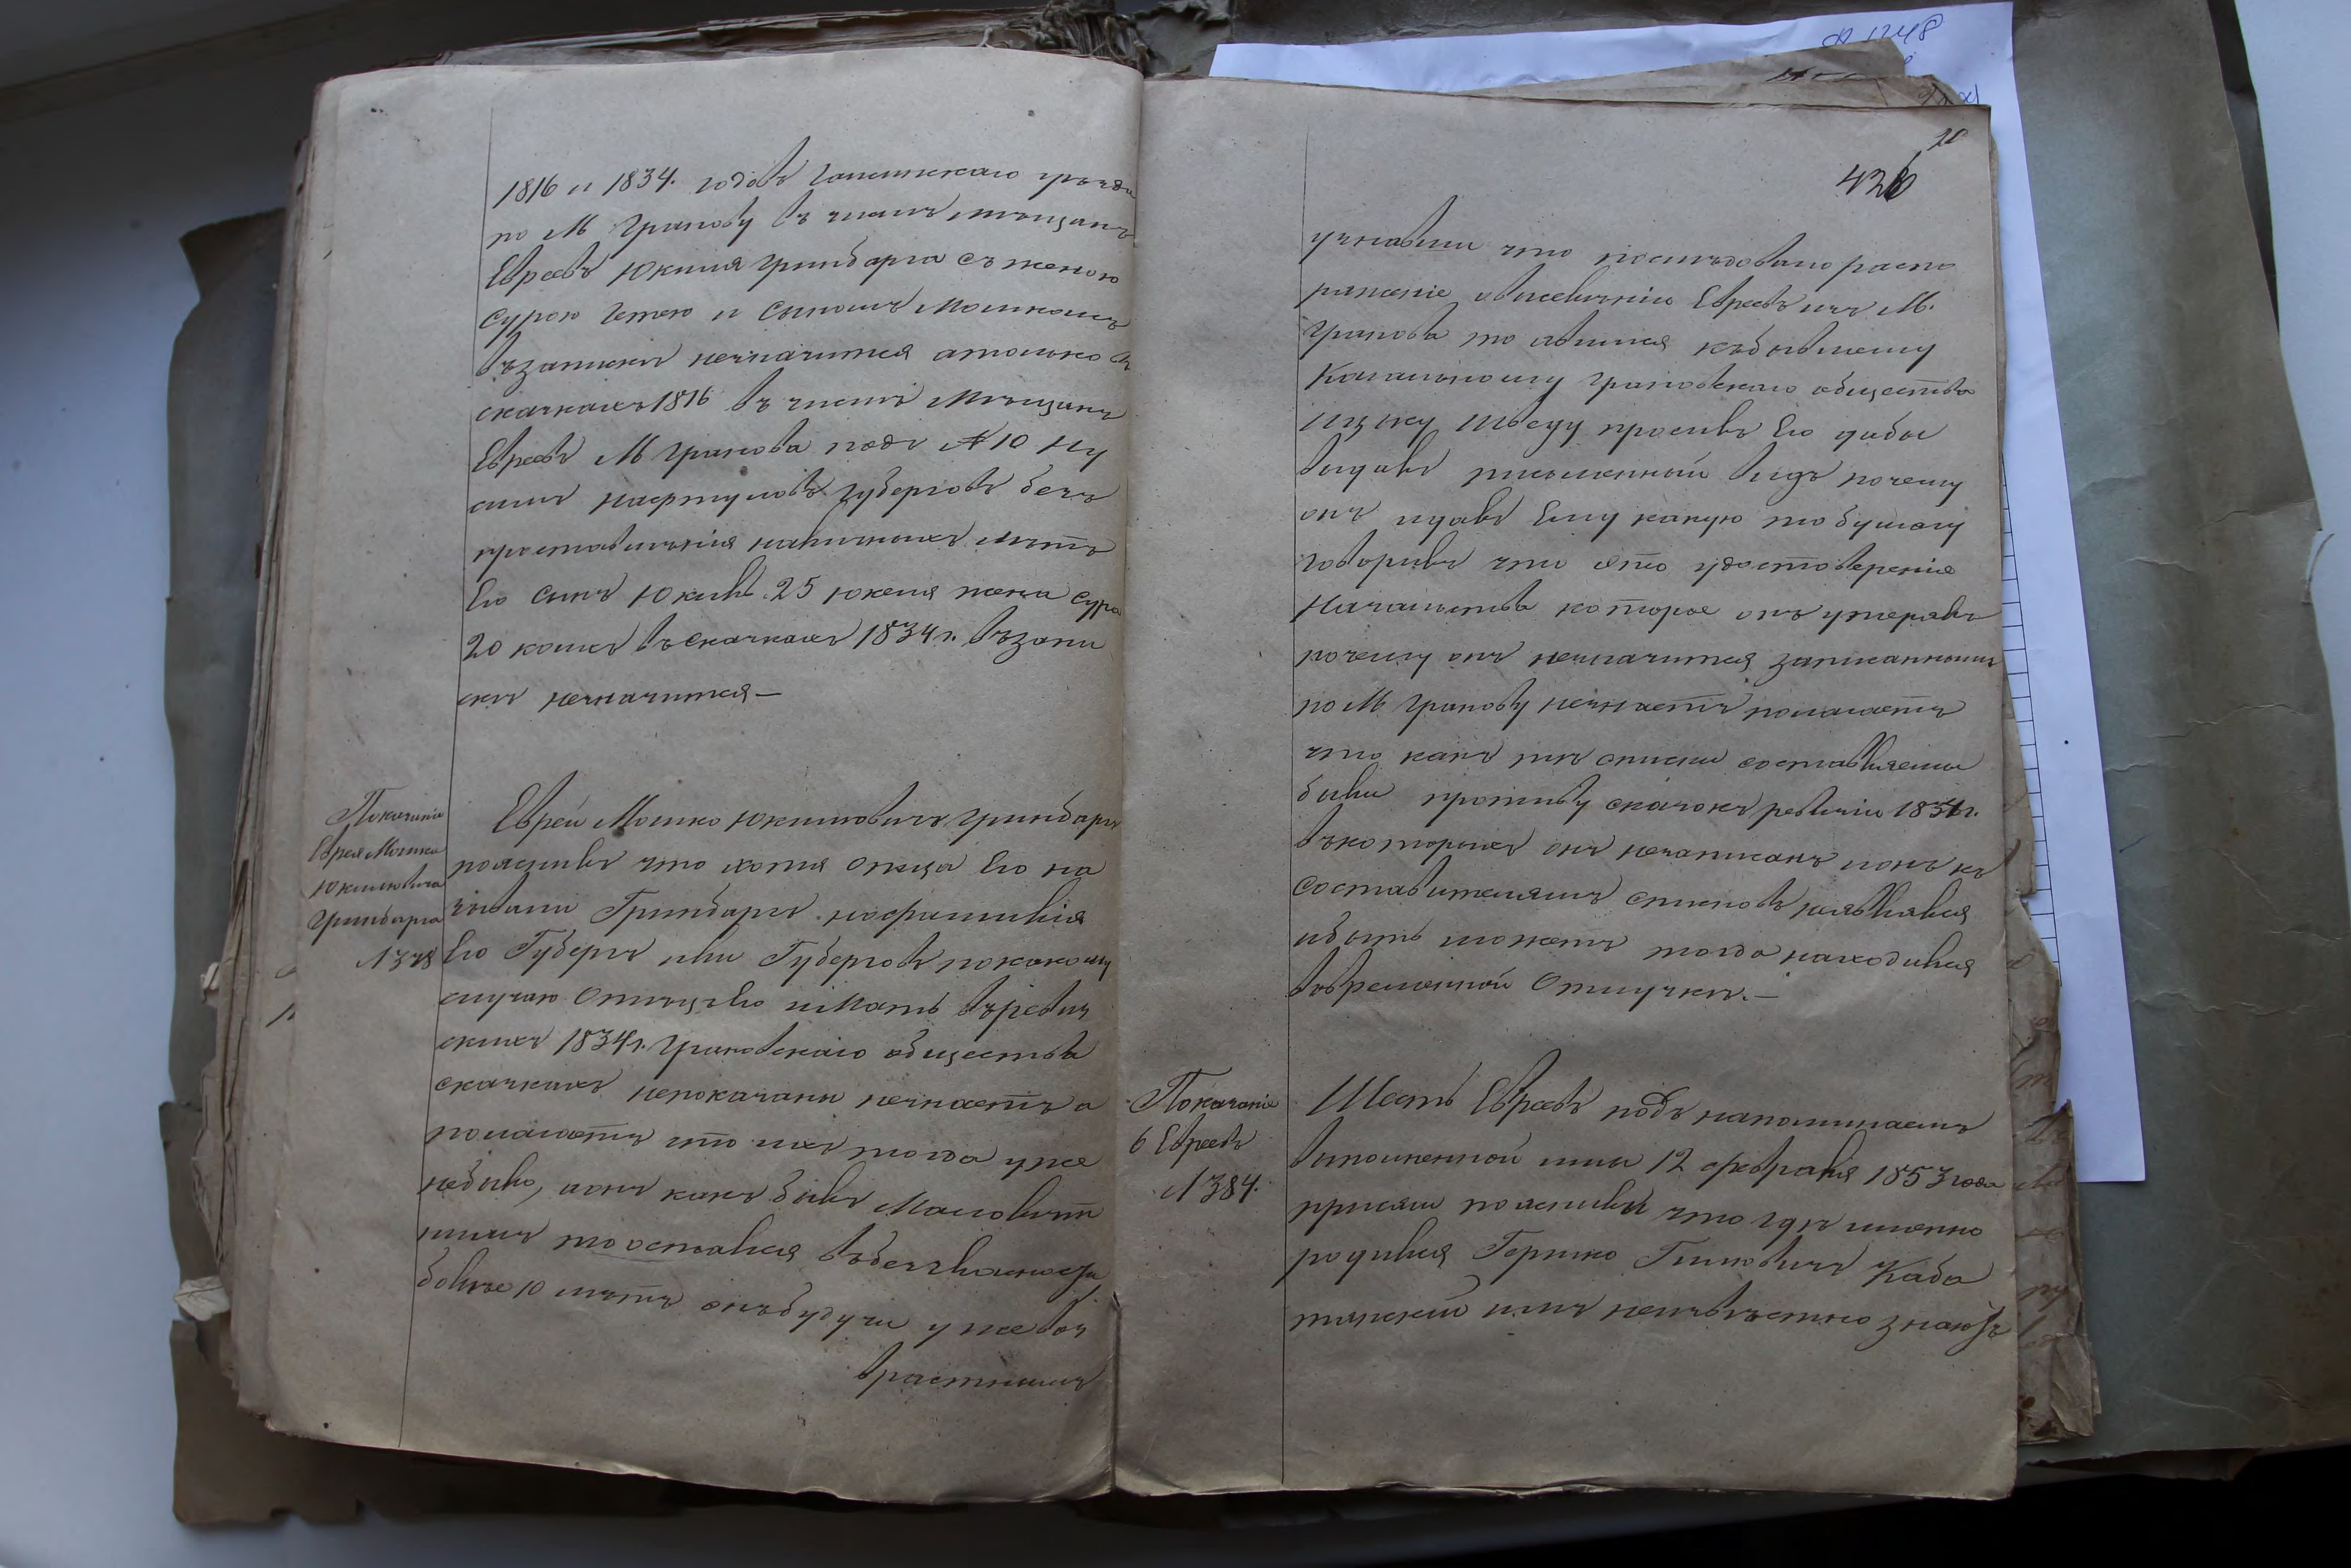 1816 и 1834. годовъ уѣзда
по М Гранову въ числѣ мѣщанъ
Евреевъ Юкиля Гринбарга съ женою
Сурою Гетею и сыномъ Мошкомъ
въ запискѣ незначится атолько въ
сказкахъ 1816 въ числѣ Мѣщанъ
Евреевъ М Гранова подъ №10 Ну
симъ Нафтуловъ Губерговъ безъ
проставленія наличныхъ лѣтъ
Его сынъ Юкивъ 25 Юкеля жена Сура
20 коихъ въ сказкахъ 1834г. въ запи
скѣ незначится—
Показаніе
Еврея Мошка
Юкилевича
Гринбарга
№378
Еврей Мошко Юкилевичъ Гринбаргъ
пояснивъ что хотя отца Его на
зывали Гринбаргъ. нофамилія
Его Губергъ или Губерговъ покакому
случаю Отецъ Его и Мать въ ревиз
скихъ 1834г. Грановскаго общества
сказкахъ непоказаны незнаетъ а
полагаетъ что ихъ тогда уже
небыло, ионъ какъ былъ Малолѣт
нимъ то остался въ безгласности
болѣе 10 лѣтъ онъ будучи уже воз
врастнымъ
20
426
узнавши что послѣдовало распо
ряженіе овыселеніи Евреевъ изъ М.
Гранова то явился къ бывшему
Кагальному Грановскаго общества
Ицьку Шведу просивъ Его дабы
выдавъ письменный видъ почему
онъ идавъ Ему какую то бумагу
говоривъ что это удостовереніе
Начальства которое онъ утерявъ
почему онъ незначится записаннымъ
по М. Гранову незнаетъ полагаетъ
что какъ тѣ списки составляемы
были противу сказокъ ревизіи 1834г.
въ которыхъ онъ незаписанъ ионъ къ
составителямъ списковъ неявлялся
ибыть можетъ тогда находился
вовременной Отлучкѣ.—
Показаніе
6 Евреевъ
№384.
Шесть Евреевъ подъ напоминаемъ
выполненной ими 12 февраля 1853 года
присяги пояснили что гдѣ именно
родился Гершко Каба
имъ неизвѣстно знаютъ